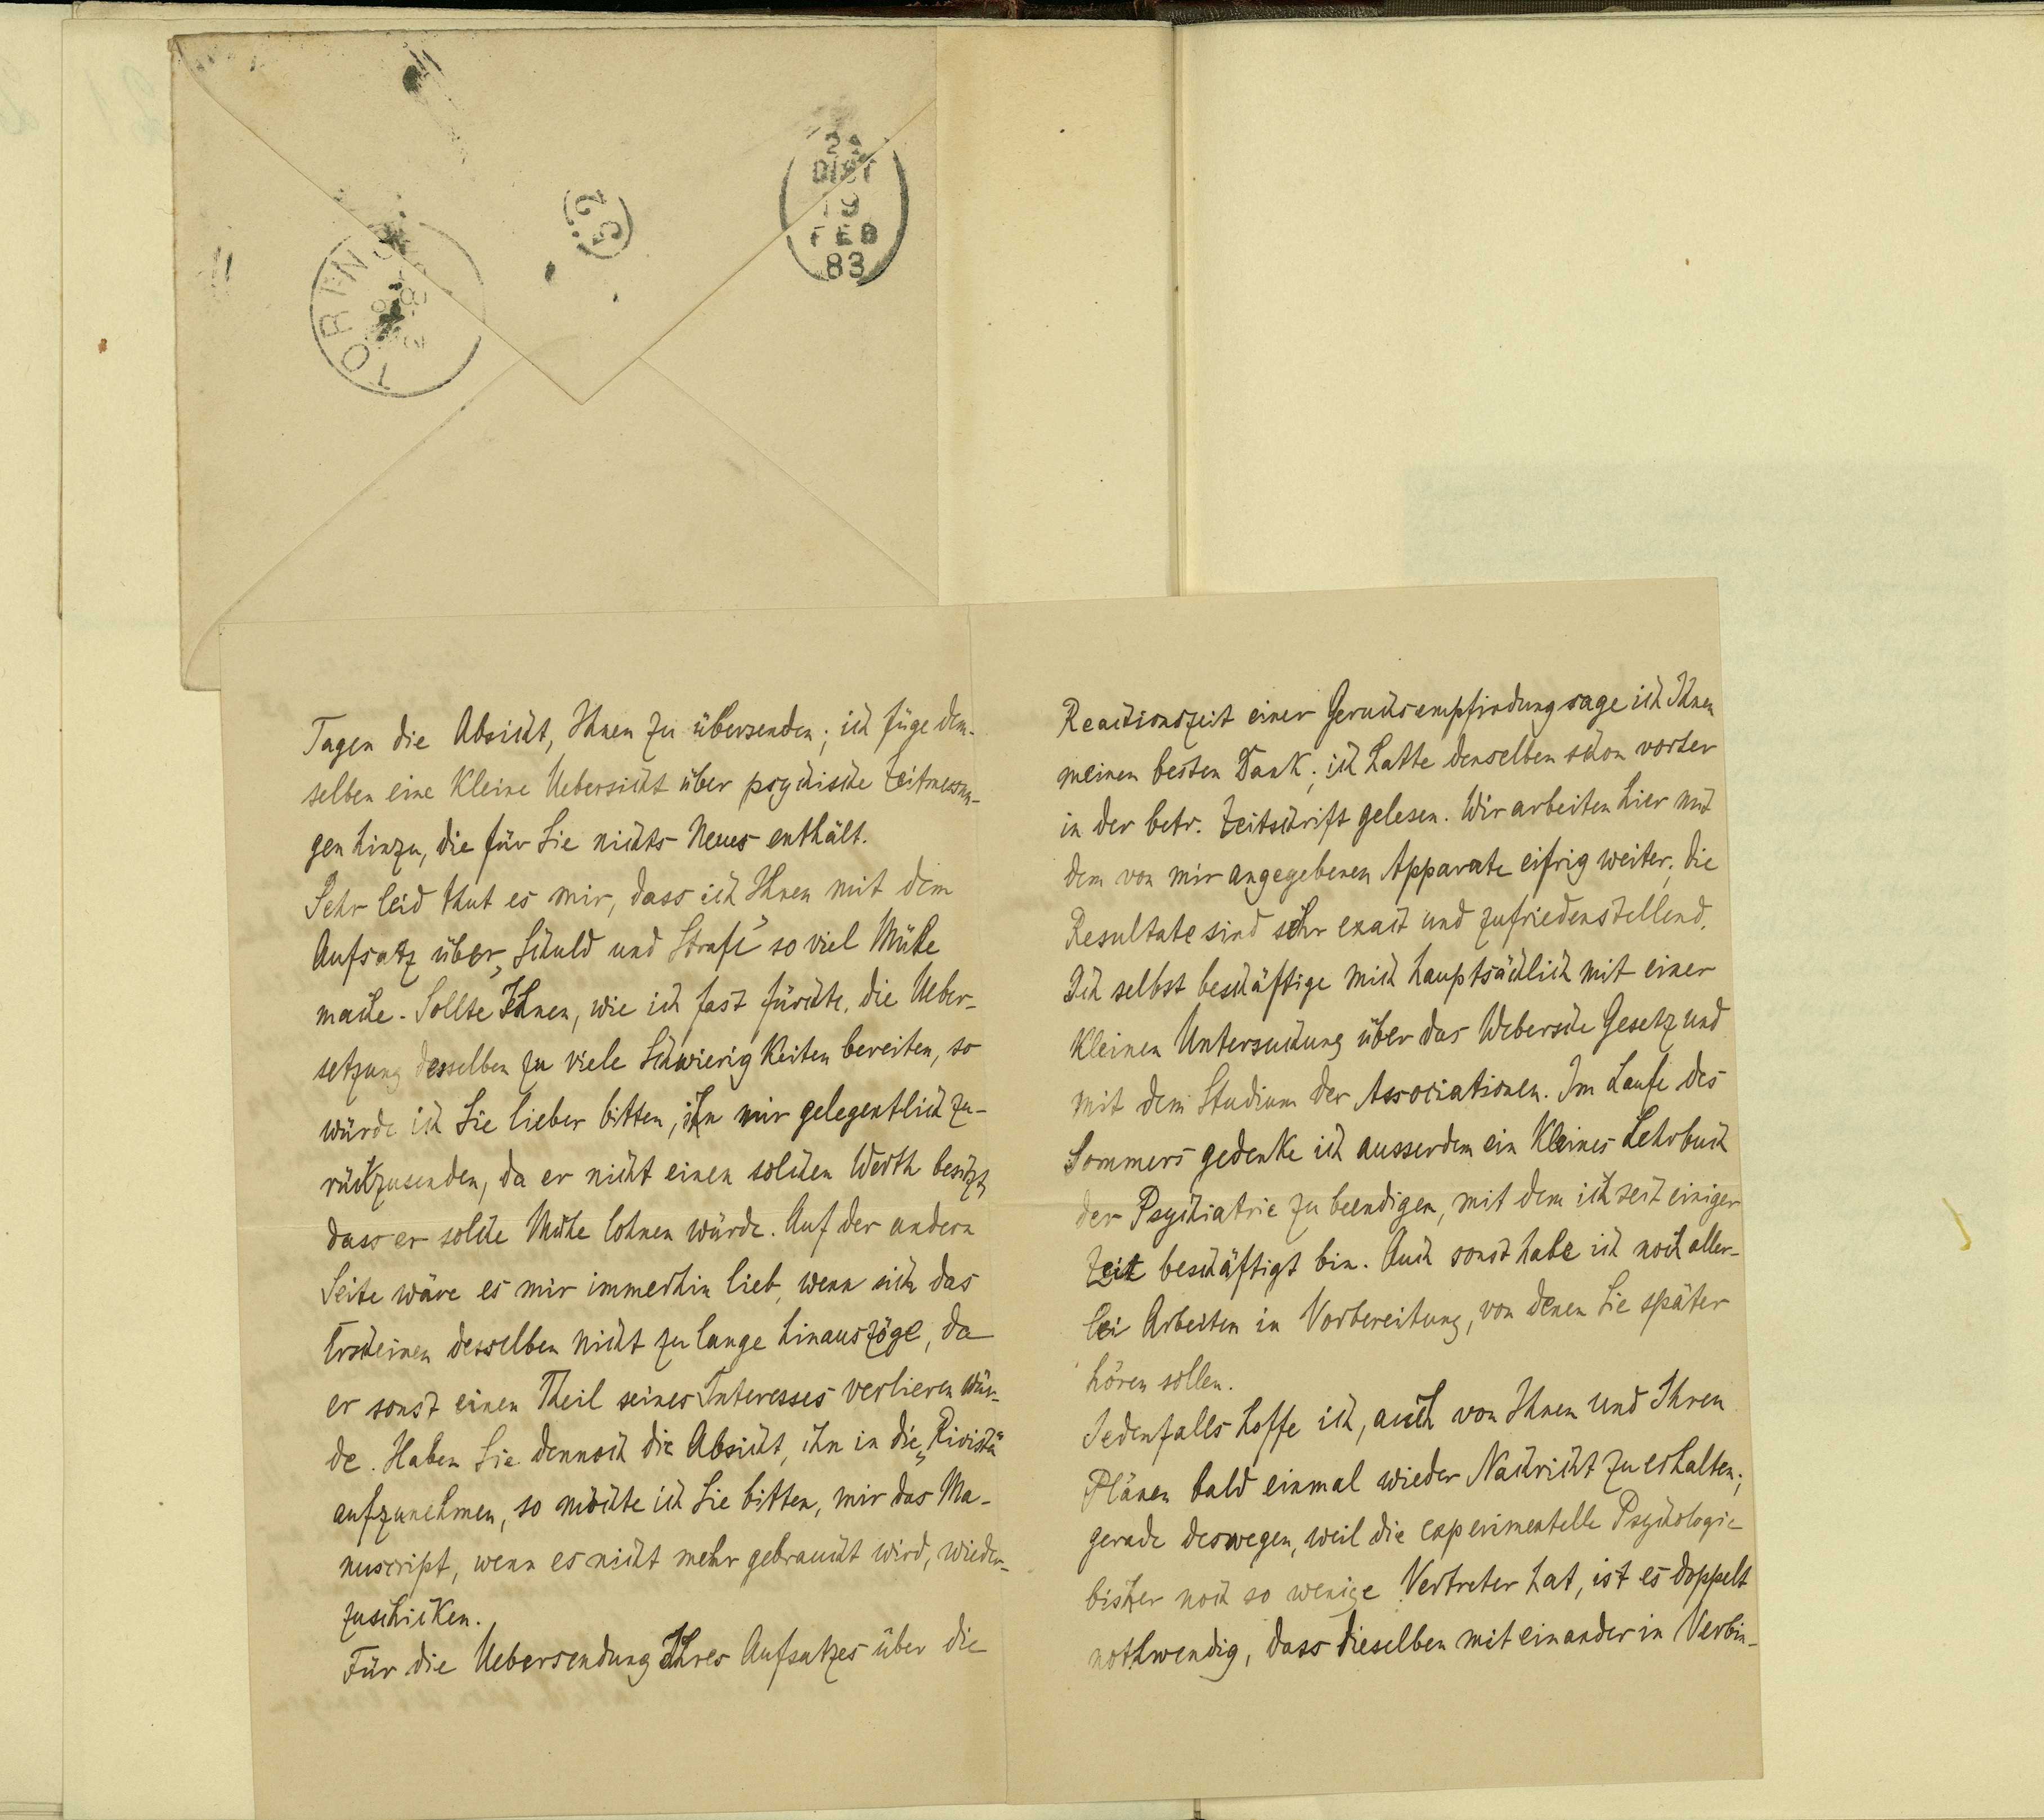 FIRENZE
5.
2A
DIST
19
FEB
83
Tagen die Absicht, Ihnen zu übersenden; ich füge dem-
selben eine kleine Uebersicht über psychische Zeitmessun-
gen hinzu, die für Sie nichts Neues enthält.
Sehr leid thut es mir, dass ich Ihnen mit dem
Aufsatz über „Schuld und Strafe“ so viel Mühe
mache. Sollte Ihnen, wie ich fast fürchte, die Ueber-
setzung desselben zu viele Schwierigkeiten bereiten, so
würde ich Sie lieber bitten, ihn mir gelegentlich zu-
rückzusenden, da er nicht einen solchen Werth besitzt,
dass er solche Mühe lohnen würde. Auf der andern
Seite wäre es mir immerhin lieb, wenn sich das
Erscheinen desselben nicht zu lange hinauszöge, da
er sonst einen Theil seines Interesses verlieren wür-
de. Haben Sie dennoch die Absicht, ihn in die „Rivista“
aufzunehmen, so möchte ich Sie bitten, mir das Ma-
nuscript, wenn es nicht mehr gebraucht wird, wieder-
zuschicken.
Für die Uebersendung Ihres Aufsatzes über die
Reactionszeit einer Geruchsempfindung sage ich Ihnen
meinen besten Dank; ich hatte denselben schon vorher
in der betr. Zeitschrift gelesen. Wir arbeiten hier mit
dem von mir angegebenen Apparate eifrig weiter; die
Resultate sind sehr exact und zufriedenstellend.
Ich selbst beschäftige mich hauptsächlich mit einer
kleinen Untersuchung über das Webersche Gesetz und
mit dem Studium der Associationen. Im Laufe des
Sommers gedenke ich ausserdem ein kleines Lehrbuch
der Psychiatrie zu beendigen, mit dem ich seit einiger
Zeit beschäftigt bin. Auch sonst habe ich noch aller-
lei Arbeiten in Vorbereitung, von denen Sie später
hören sollen.
Jedenfalls hoffe ich, auch von Ihnen und Ihren
Plänen bald einmal wieder Nachricht zu erhalten;
gerade deswegen, weil die experimentelle Psychologie
bisher noch so wenige Vertreter hat, ist es doppelt
nothwendig, dass dieselben mit einander in Verbin-